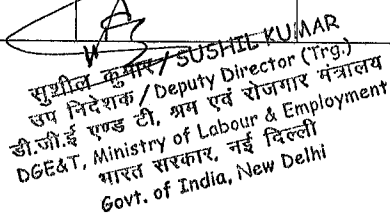 सुशील कुमार / SUSHIL KUMAR
उप निदेशक / Deputy Director (Trg.)
डी.जी.ई एण्ड टी, श्रम एवं रोजगार मंत्रालय
DGE&T, Ministry of Labour & Employment
भारत सरकार, नई दिल्ली
Govt. of India, New Delhi